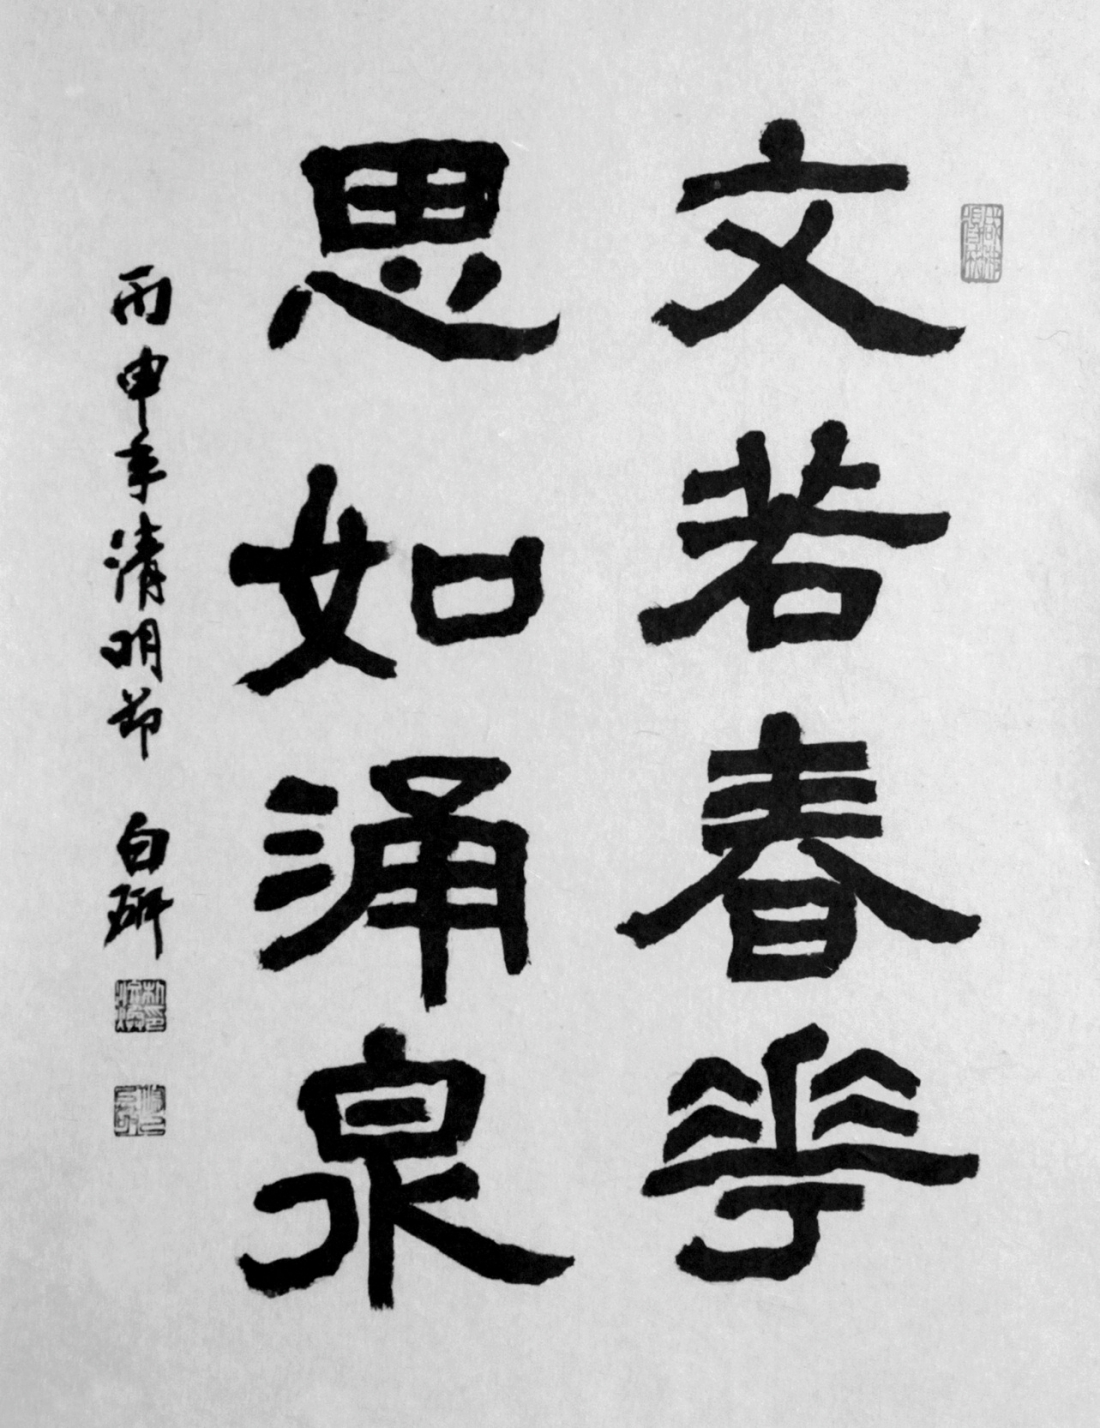 文若春華
思如涌泉
丙申年清明節 白研